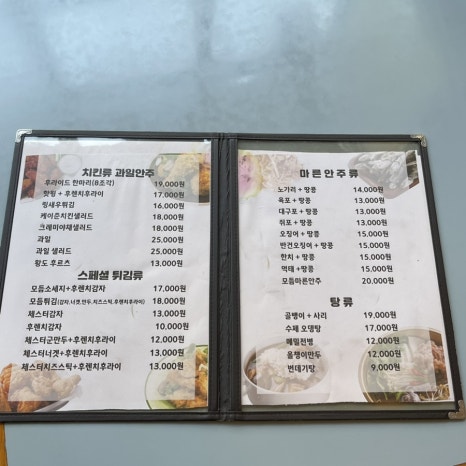 치킨류 과일안주
후라이드 한마리(8조각) 19,000원
핫윙 + 후렌치후라이 17,000원
링새우튀김 16,000원
케이준치킨샐러드 18,000원
크래미야채샐러드 18,000원
과일 25,000원
과일 샐러드 25,000원
황도 후르츠 13,000원
스페셜 튀김류
모듬소세지+후렌치감자 17,000원
모듬튀김(감자,너겟,만두,치즈스틱,후렌치후라이) 18,000원
체스터감자 13,000원
후렌치감자 10,000원
체스터군만두+후렌치후라이 12,000원
체스터너겟+후렌치후라이 13,000원
체스터치즈스틱+후렌치후라이 13,000원
마른안주류
노가리 + 땅콩 14,000원
육포 + 땅콩 13,000원
대구포 + 땅콩 13,000원
쥐포 + 땅콩 13,000원
오징어 + 땅콩 15,000원
반건오징어 + 땅콩 15,000원
한치 + 땅콩 15,000원
먹태 + 땅콩 15,000원
모듬마른안주 20,000원
탕류
골뱅이 + 사리 19,000원
수제 오뎅탕 17,000원
메밀전병 12,000원
올챙이만두 12,000원
번데기탕 9,000원